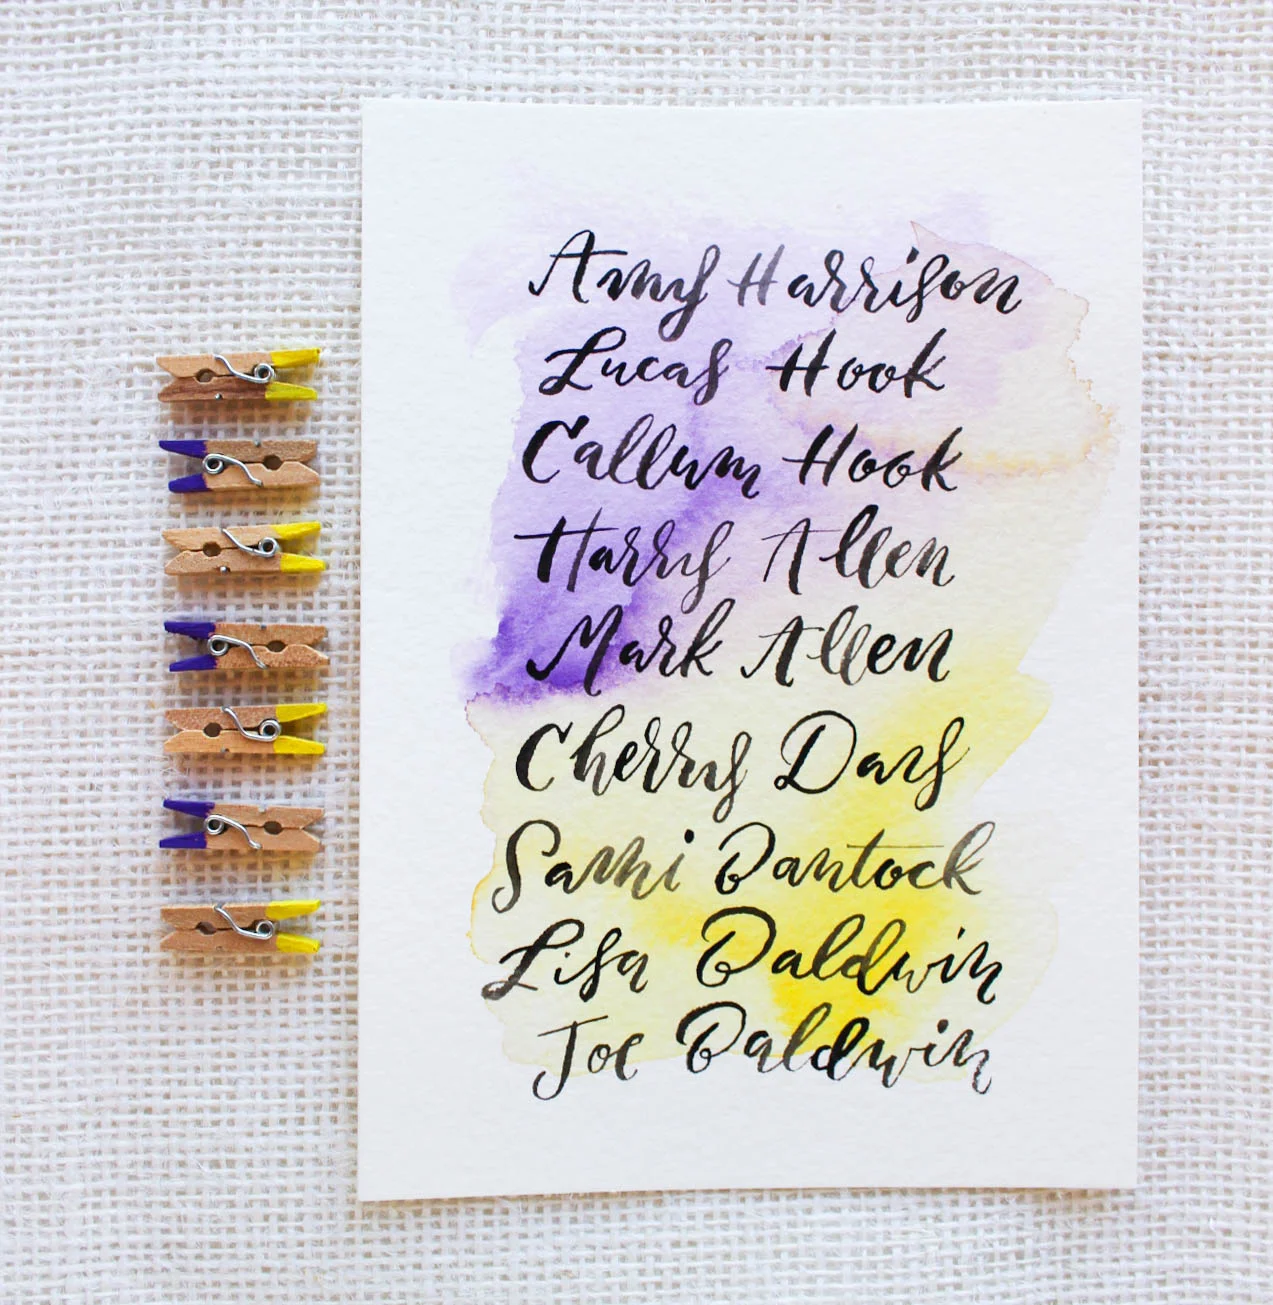 Amy Harrison
Lucas Hook
Callum Hook
Harry Allen
Mark Allen
Cherry Day
Sami Bantock
Lisa Baldwin
Joe Baldwin